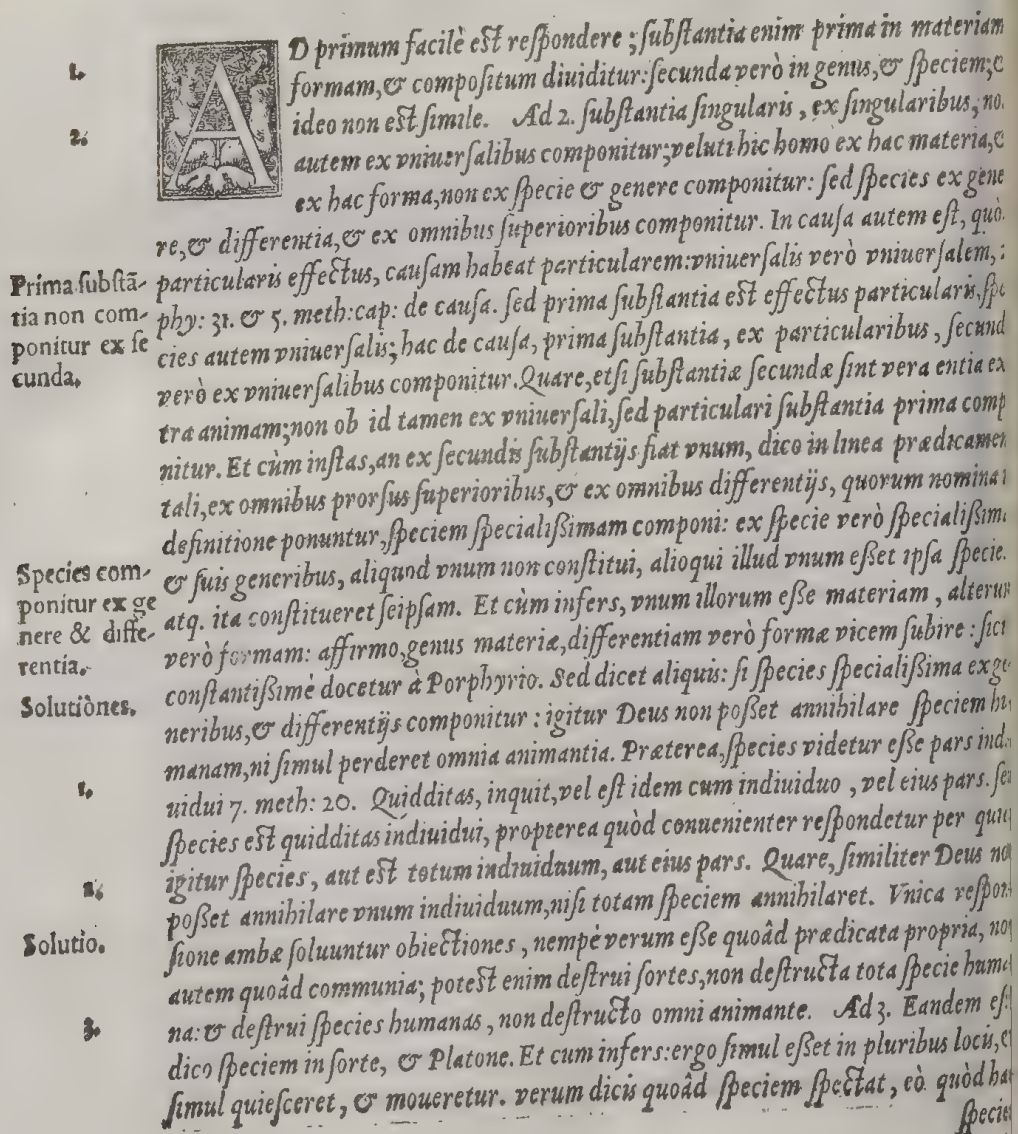 AD primum facilè est respondere; substantia enim prima in materiam
1.
formam, & compositum diuiditur: secunda verò in genus, & speciem;
ideo non est simile. Ad 2. substantia singularis, ex singularibus, no
2.
autem ex vniuersalibus componitur; veluti hic homo ex hac materia,
ex hac forma, non ex specie & genere componitur: sed species ex gene
re, & differentia, & ex omnibus superioribus componitur. In causa autem est, quò
Prima substã-
tia non com-
ponitur ex se
cunda.
particularis effectus, causam habeat particularem: vniuersalis verò vniuersalem,
phy: 31. & 5. meth: cap: de causa. sed prima substantia est effectus particularis, spe
cies autem vniuersalis; hac de causa, prima substantia, ex particularibus, secund
verò ex vniuersalibus componitur. Quare, etsi substantiæ secundæ sint vera entia ex
tra animam; non ob id tamen ex vniuersali, sed particulari substantia prima comp
nitur. Et cùm instas, an ex secundis substantijs fiat vnum, dico in linea prædicamen
tali, ex omnibus prorsus superioribus, & ex omnibus differentijs, quorum nomina
definitione ponuntur, speciem specialißimam componi: ex specie verò specialißim
Species com-
ponitur ex ge
nere & diffe-
rentia.
& suis generibus, aliquod vnum non constitui, alioqui illud vnum eßet ipsa specie
atq. ita constitueret seipsam. Et cùm infers, vnum illorum eße materiam, alterum
verò formam: affirmo, genus materiæ, differentiam verò formæ vicem subire: sicu
constantißimè docetur à Porphyrio. Sed dicet aliquis: si species specialißima ex ge
Solutiònes.
neribus, & differentijs componitur: igitur Deus non poßet annihilare speciem hu
manam, ni simul perderet omnia animantia. Præterea, species videtur eße pars indi
1.
uidui 7. meth: 20. Quidditas, inquit, vel est idem cum indiuiduo, vel eius pars. sed
species est quidditas indiuidui, propterea quòd conuenienter respondetur per quid
igitur species, aut est totum indiuiduum, aut eius pars. Quare, similiter Deus no
2.
poßet annihilare vnum indiuiduum, nisi totam speciem annihilaret. Vnica respon
Solutio.
sione ambæ soluuntur obiectiones, nempè verum eße quoâd prædicata propria, non
autem quoâd communia; potest enim destrui sortes, non destructa tota specie huma
3.
na: & destrui species humanas, non destructo omni animante. Ad 3. Eandem eß
dico speciem in sorte, & Platone. Et cum infers: ergo simul eßet in pluribus locis,
simul quiesceret, & moueretur. verum dicis quoâd speciem spectat, eò quòd hæ
specie